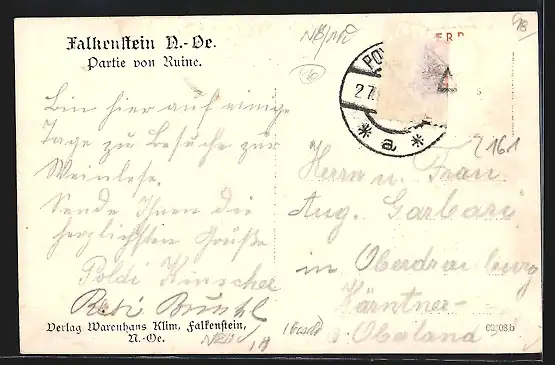 Falkenstein N.-Oe.
Partie von Ruine.
Bin hier auf einige
Tage zu Besuche zur
Weinlese.
Sende Ihnen die
herzlichsten Grüße
Poldi
Resi
Verlag Warenhaus Klim, Falkenstein,
N.-Oe.
18
27.
* a *
2161
Herrn u. Frau
Aug. Garbari
in Oberdrauburg
Kärntner-
Oberland